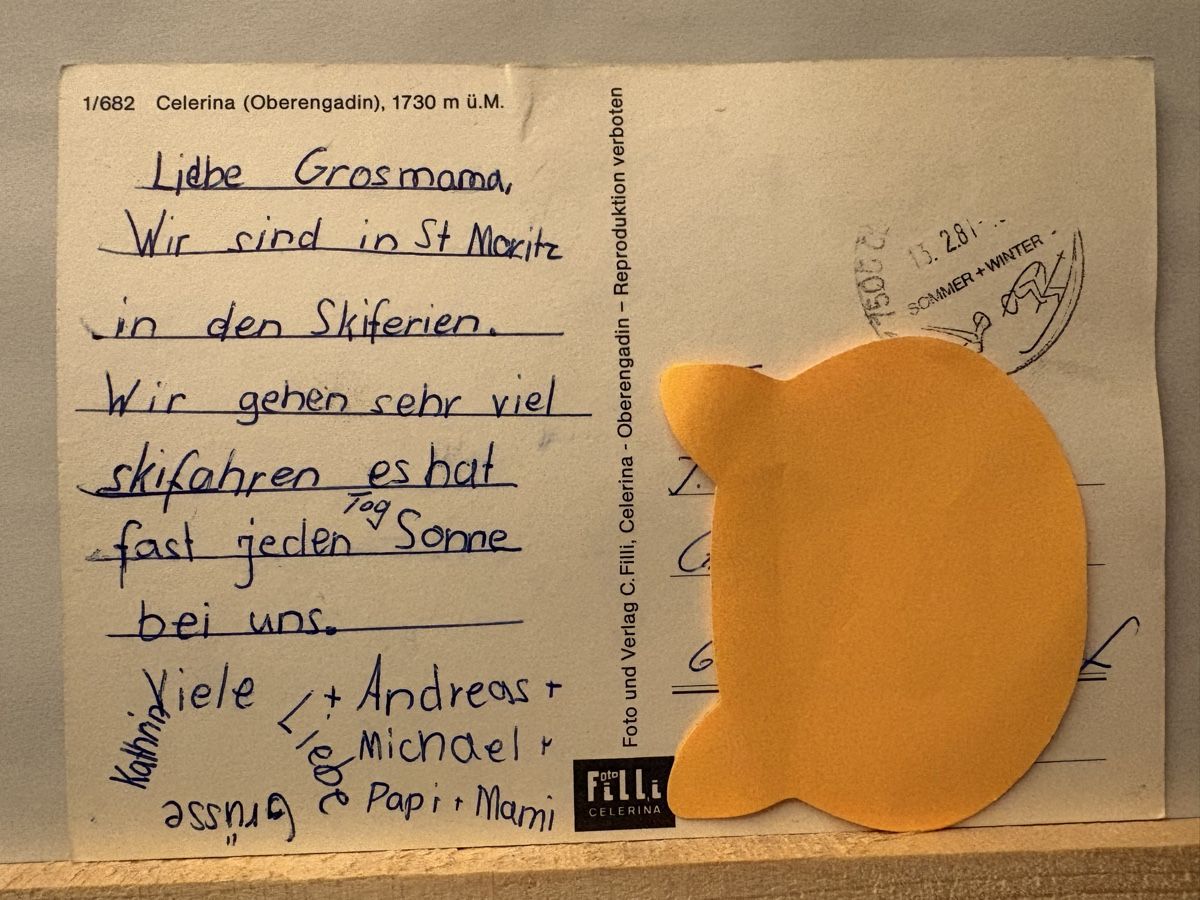 1/682 Celerina (Oberengadin), 1730 m ü.M.
Liebe Grosmama,
Wir sind in St Moritz
in den Skiferien.
Wir gehen sehr viel
skifahren es hat
fast jeden Tag Sonne
bei uns.
Viele
Liebe
Grüsse
Kathrin
+ Andreas +
Michael +
Papi + Mami
Foto und Verlag C. Filli, Celerina - Oberengadin – Reproduktion verboten
Foto
Filli
CELERINA
13. 2.81
SOMMER + WINTER